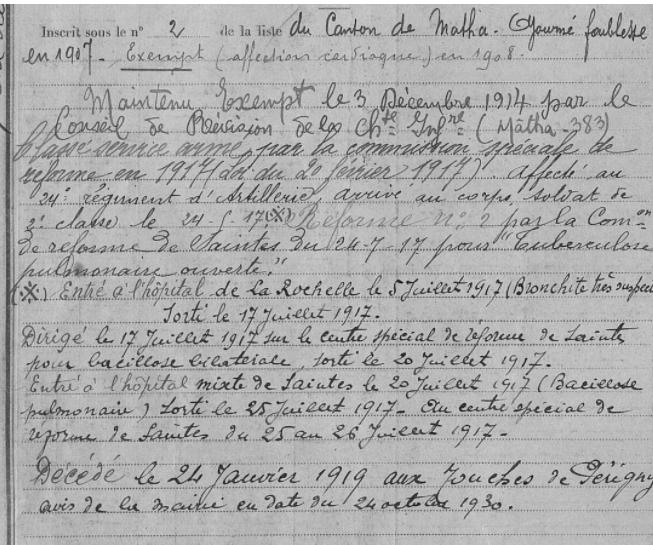 Inscrit sous le n° 2 de la liste du Canton de Matha. Ajourné faiblesse
en 1907 - Exempt (affections cardiaque) en 1908.
Maintenu Exempt le 3 Décembre 1914 par le
Conseil de Révision de la Chte Infre (Matha-383)
Classé service armé par la commission spéciale de
réforme en 1917 (Loi du 20 février 1917). Affecté au
24e régiment d'Artillerie, arrivé au corps, soldat de
2e classe le 24-5 17 (※) Réformé n° 2 par la Comon
de réforme de Saintes du 24-7-17 pour "Tuberculose
pulmonaire ouverte."
(※) Entré à l'hôpital de la Rochelle le 5 Juillet 1917 (Bronchite très suspecte
Sorti le 17 Juillet 1917.
Dirigé le 17 Juillet 1917 sur le centre spécial de réforme de Saintes
pour bacillose bilatérale, sorti le 20 Juillet 1917.
Entré à l'hôpital mixte de Saintes le 20 Juillet 1917 (Bacillose
pulmonaire) sorti le 25 Juillet 1917 - Au centre spécial de
réforme de Saintes du 25 au 26 Juillet 1917 -
Décédé le 24 Janvier 1919 aux Touches de Périgny
avis de la mairie en date du 24 octobre 1930.